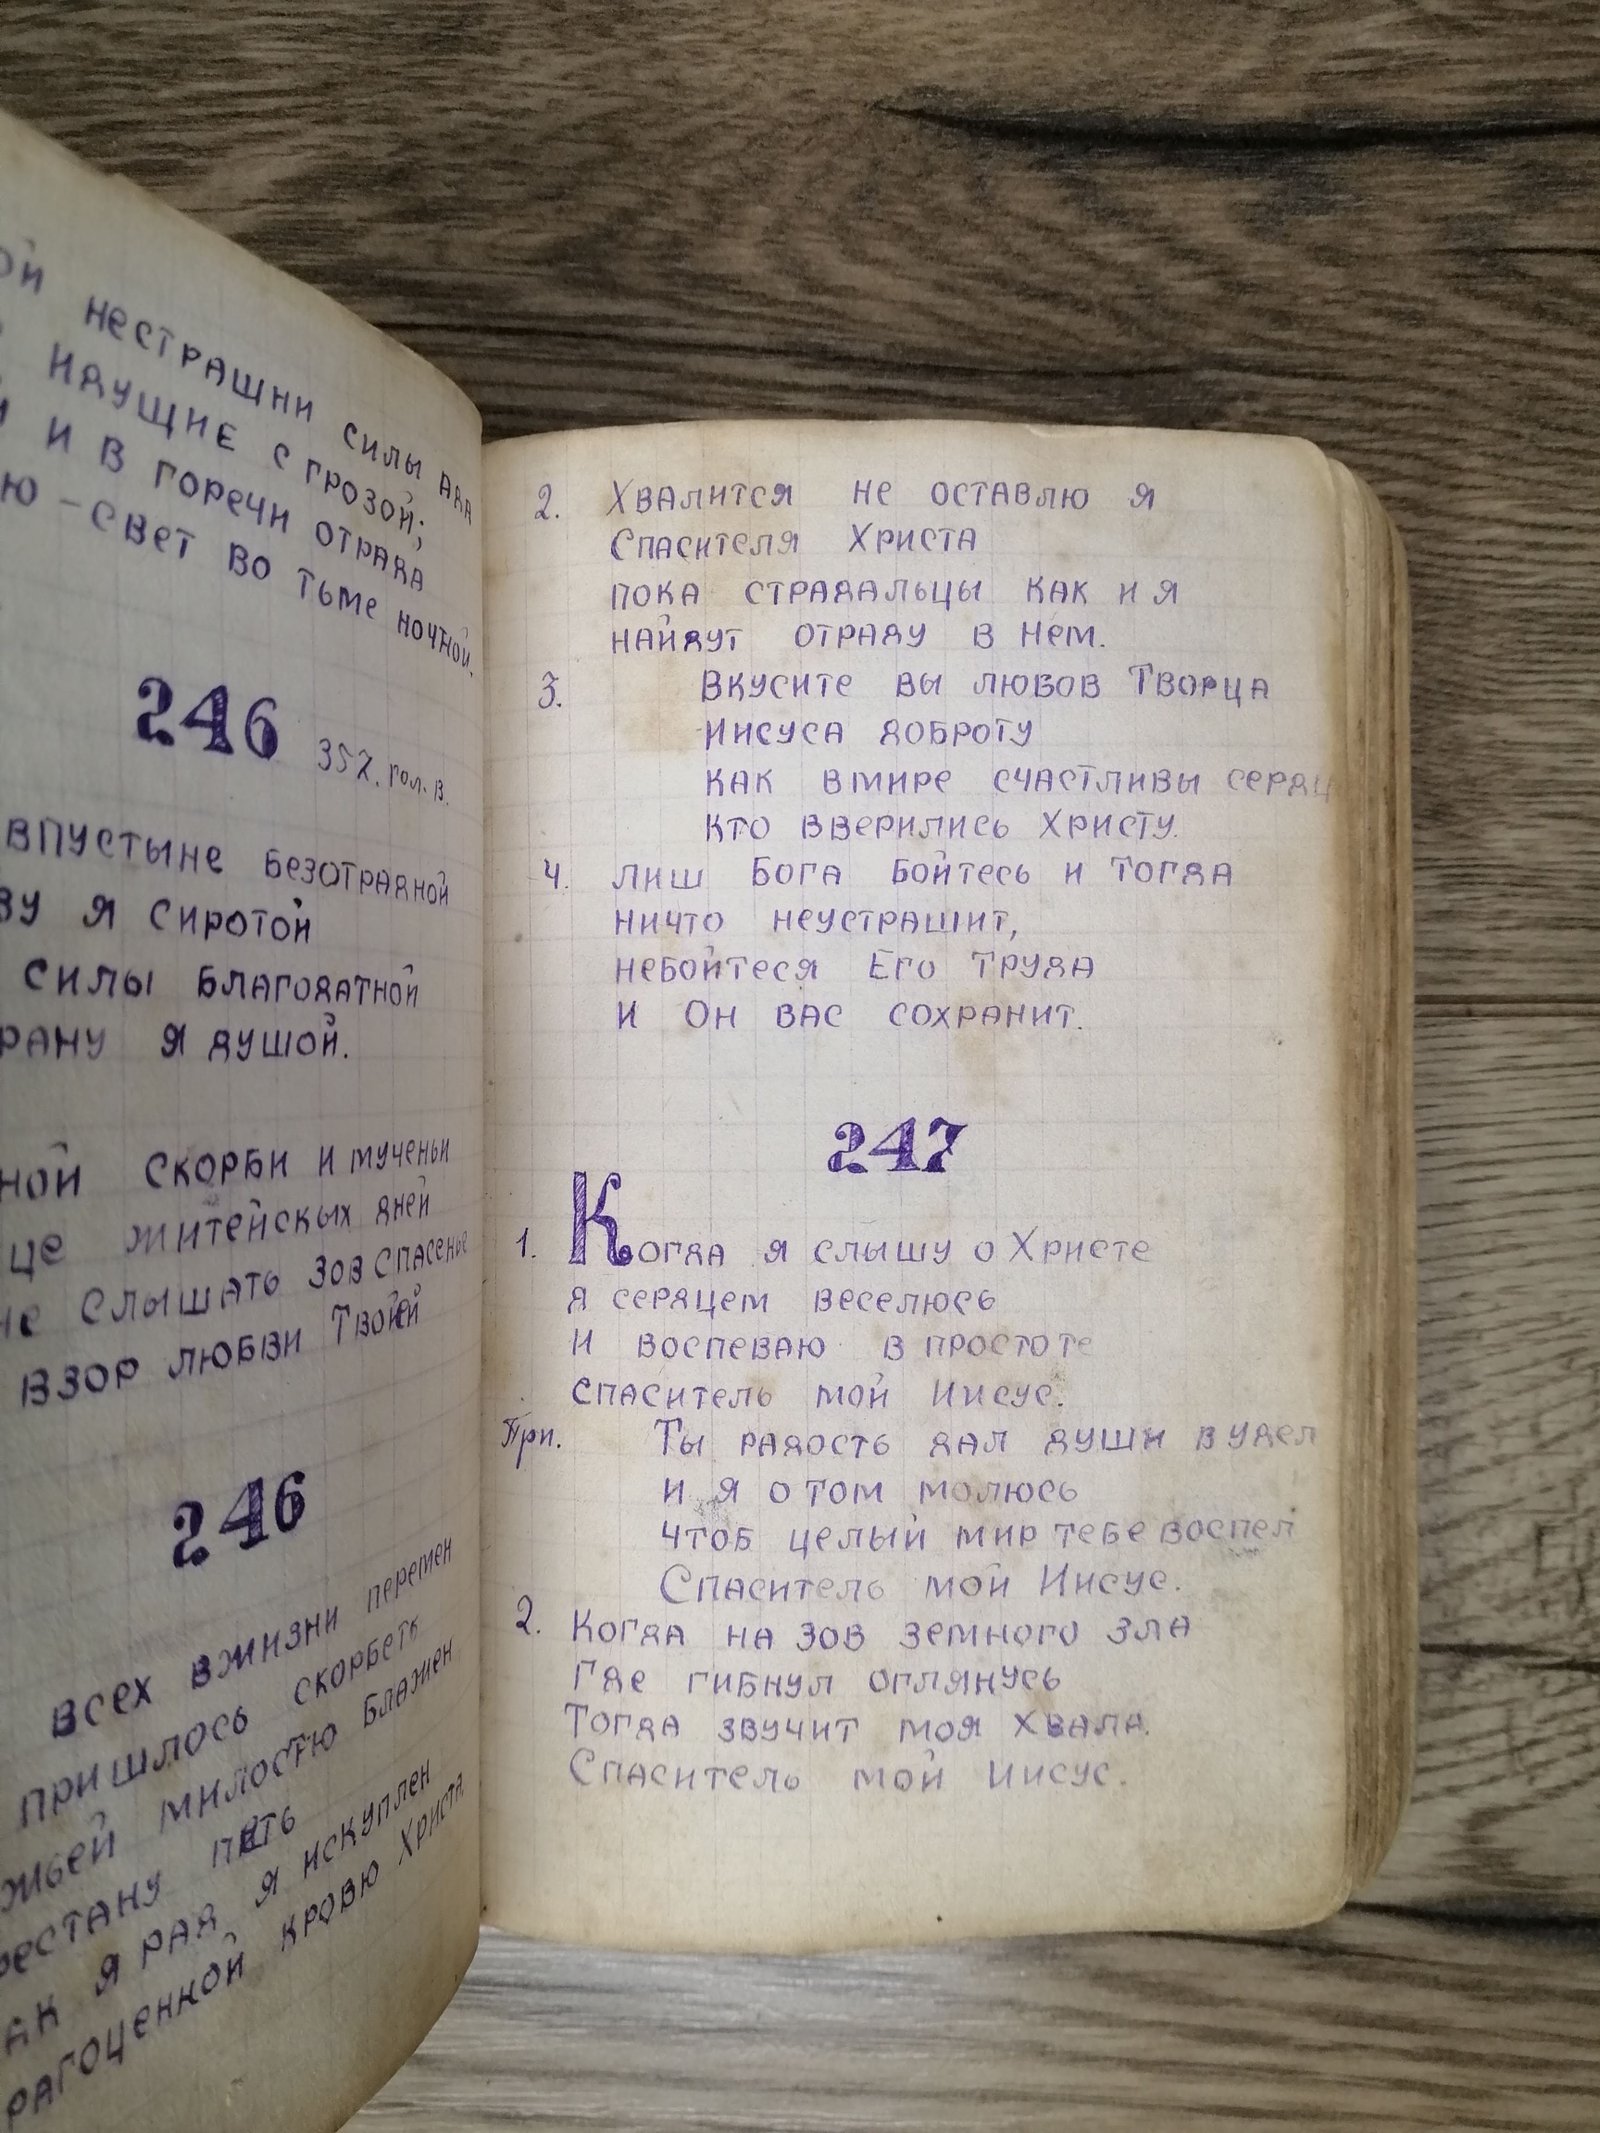 нестрашни силы ада
идущие с грозой;
и в горечи отрада
ю - свет во тьме ночной.
246 357. гол. в.
впустыне безотрадной
я сиротой
силы благодатной
я душой.
ной скорби и мученьи
це житейскых дней
слышать зов спасенье
взор любви Твоей
246
всех вжизни перемен
пришлось скорбеть
жьей милостю блажен
рестану петь
ак я рад я искуплен
рагоценной кровю Христа
2. Хвалится не оставлю я
Спасителя Христа
пока страдальцы как и я
найдут отраду в нем.
3. Вкусите вы любов Творца
Иисуса доброту
как вмире счастливы сердц
кто вверились Христу.
4. лиш Бога бойтесь и тогда
ничто неустрашит,
небойтеся Его труда
и Он вас сохранит.
247
1. Когда я слышу о Христе
я сердцем веселюсь
и воспеваю в простоте
спаситель мой Иисус.
При. Ты радость дал души вудел
и я о том молюсь
чтоб целый мир тебе воспел
Спаситель мой Иисус.
2. Когда на зов земного зла
где гибнул оглянусь
Тогда звучит моя хвала.
Спаситель мой Иисус.